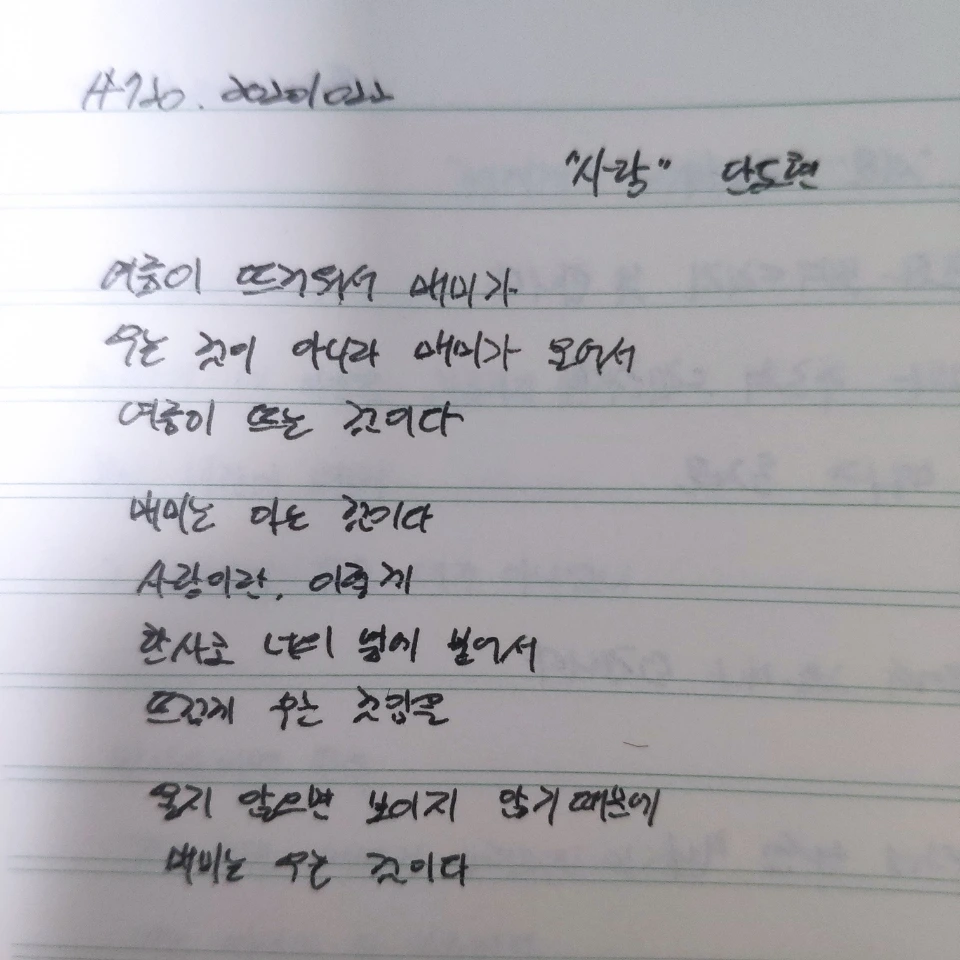 #720. 20201022
"사랑" 안도현
여름이 뜨거워서 매미가
우는 것이 아니라 매미가 울어서
여름이 뜨는 것이다
매미는 아는 것이다
사랑이란, 이렇게
한사코 너의 옆에 붙어서
뜨겁게 우는 것임을
울지 않으면 보이지 않기 때문에
매미는 우는 것이다